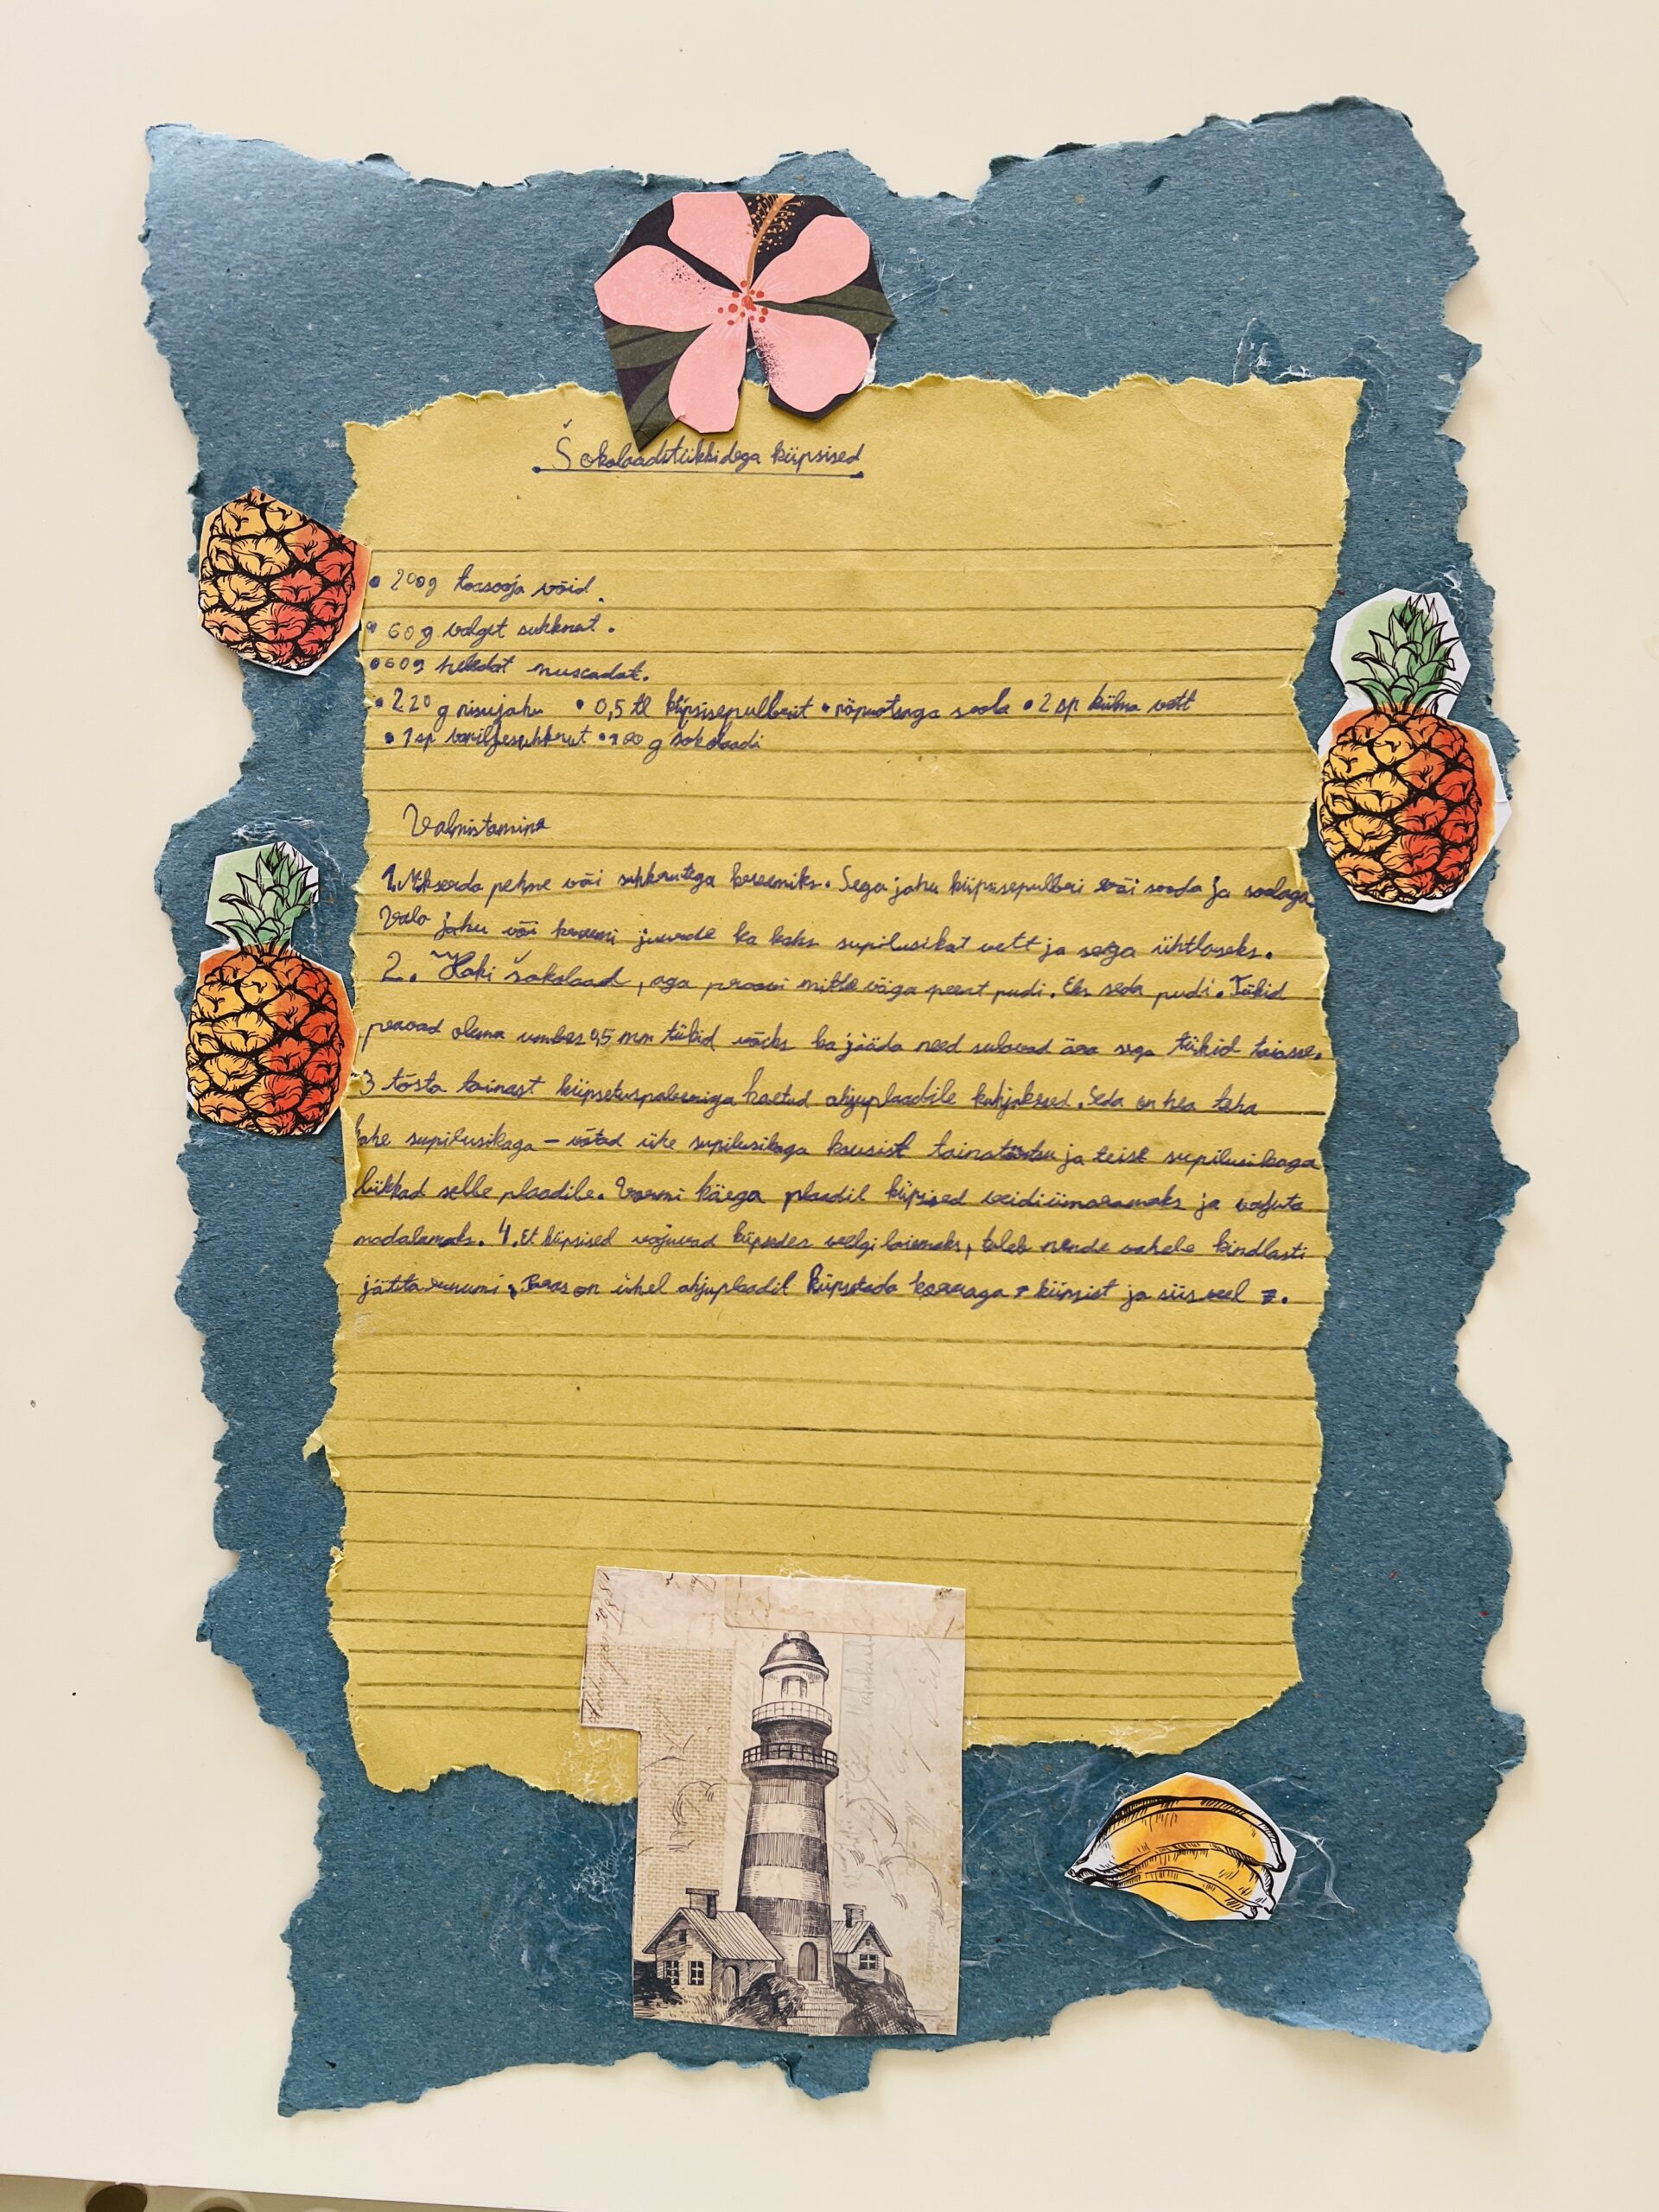 Šokolaaditükkidega küpsised
• 200g toasooja võid.
• 60 g valget suhkrut.
• 60g heledat muscadat.
• 220 g nisujahu • 0,5 tl küpsisepulbrit • näpuotsaga soola • 2 sp külma vett
• 1 sp vanilljesuhkrut • 100 g šokolaadi
Valmistamine
1. Mikserda pehme või suhkrutega kreemiks. Sega jahu küpsisepulbri või sooda ja soolaga
Vala jahu või kreemi juurde ka kaks supilusikat vett ja sega ühtlaseks.
2. Haki šokolaad, aga proovi mitte väga peent pudi. Eks seda pudi. Tükid
peavad olema umbes 0,5 mm tükid väiks ka jääda need sulavad ära sega tükid taiasse.
3 tõsta tainast küpsetuspaberiga kaetud ahjuplaadile kuhjakesed. Seda on hea teha
kahe supilusikaga – võtad ühe supilusikaga kausist taina ja teise supilusikaga
lükkad selle plaadile. Vormi käega plaadil küpised veidi ümaramaks ja vajuta
madalamaks. 4. Et küpsised vajuvad küpsedes veelgi laiemaks, tuleb nende vahele kindlasti
jätta ruumi, Paras on ühel ahjuplaadil küpsetada korraga 7 küpsist ja siis veel 7.